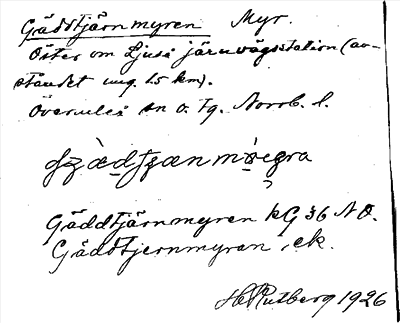 Gäddtjärnmyren Myr.
Öster om Ljuså järnvägsstation (av-
ståndet ung. 15 km).
Överluleå sn o. tg. Norrb. l.
Gäddtjärnmyren kG 36 NO.
Gäddtjernmyran, ek.
H Rutberg 1926